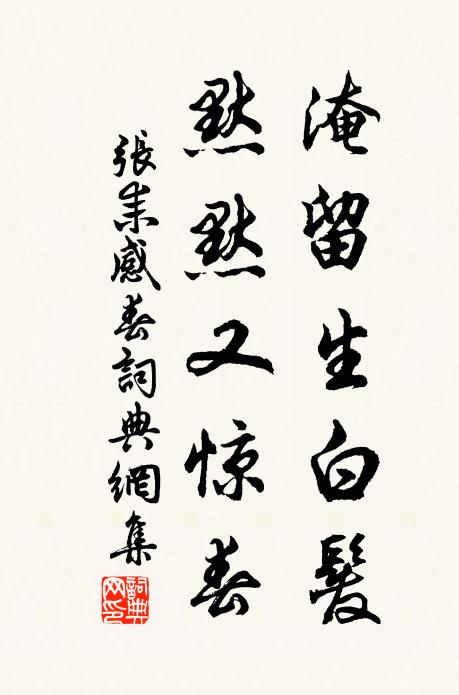 淹留生白髮
默默又惊春
張耒感春詞典網集
詞典网印